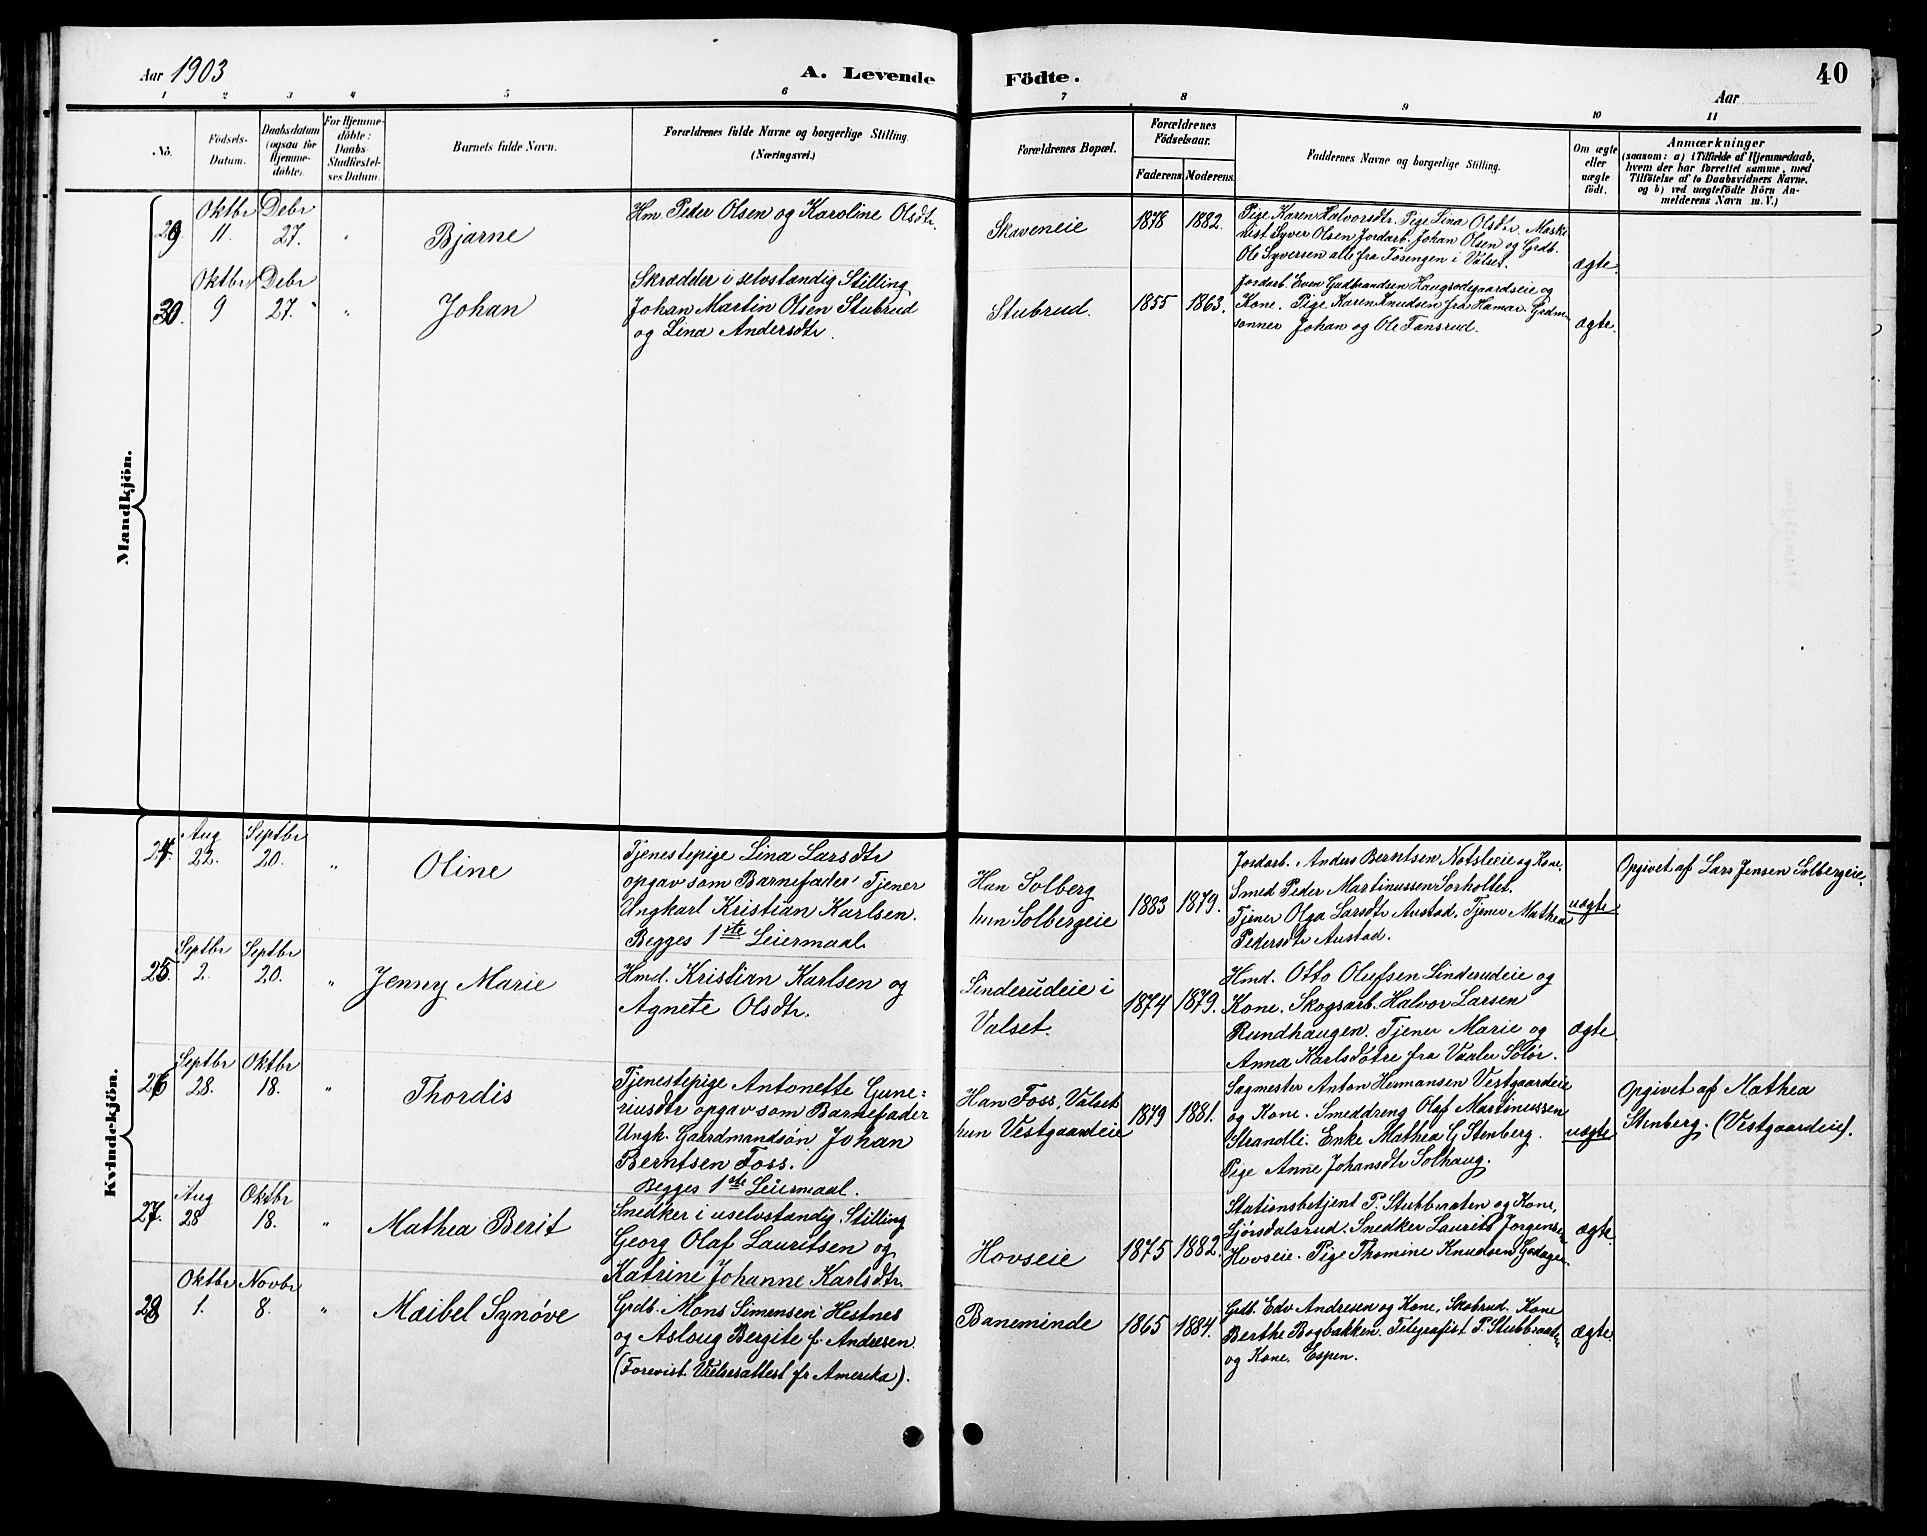 Aar 1903
A. Levende Födte.
40
Aar
1 2 3 4 5 6 7 8 9 10 11
No.
Födsels-
Datum.
Daabsdatum
(ogsaa for
Hjemme-
döbte).
For Hjemme-
döbte:
Daabs-
Stadfæstel-
ses Datum.
Barnets fulde Navn.
Forældrenes fulde Navne og borgerlige Stilling.
(Næringsvei.)
Forældrenes Bopæl.
Forældrenes
Födselsaar.
Faderens Moderens.
Faddernes Navne og borgerlige Stilling.
Om ægte
eller
uægte
født.
Anmærkninger
(saasom: a) i Tilfælde af Hjemmedaab,
hvem der har forrettet samme, med
Tilføielse af to Daabsvidners Navne.
og b) ved uægtefødte Børn An-
melderens Navn m. V.)
Mandkjön.
29
Oktbr
11.
Debr
27.
"
Bjarne
Hm. Peder Olsen og Karoline Olsdtr.
Skaveneie
1878
1882.
Pige Karen Halvorsdtr. Pige Lina Olsdtr. Maski
nist Syver Olsen Jordarb. Johan Olsen og Grdb.
Ole Syversen alle fra Fosengen i Valset.
ægte.
30.
Oktbr
9
Debr
27.
"
Johan
Skrædder i selvstændig Stilling
Johan Martin Olsen Stubrud
og Lina Andersdtr.
Stubrud.
1855
1863.
Jordarb. Even Gudbrandsen Haugsodegaardseie og
Kone. Pige Karen Knudsen fra Hamar. Grdm-
sønner Johan og Ole Tønsrud.
ægte.
Kvindekjön.
24.
Aug
22.
Septbr
20.
"
Oline
Tjenestepige Lina Larsdtr
opgav som Barnefader Tjener
Ungkarl Kristian Karlsen.
Begges 1ste Leiermaal.
Han Solberg
hun Solbergeie
1883
1879.
Jordarb. Anders Berntsen Notsleeie og Kone.
Smed Peder Martinussen Sorholtet.
Tjener Olga Larsdtr Austad, Tjener Mathea
Pedersdtr Austad.
uægte
Opgivet af Lars Jensen Solbergeie.
25.
Septbr
2.
Septbr
20.
"
Jenny Marie
Hmd. Kristian Karlsen og
Agnete Olsdtr.
Linderudeie i
Valset.
1874
1879.
Hmd. Otto Olufsen Linderudeie og
Kone. Skogsarb. Halvor Larsen
Rundhaugen. Tjener Marie og
Anna Karlsdøtre fra Vaaler Solør.
ægte
26
Septbr
28.
Oktbr
18.
"
Thordis
Tjenestepige Antonette Gune-
riusdtr opgav som Barnefader
Ungk. Gaardmandsøn Johan
Berntsen Foss.
Begges 1ste Leiermaal.
Han Foss, Valset
hun Vestgaardeie
1879
1881.
Sagmester Anton Hermansen Vestgaardeie
og Kone. Smeddreng Olaf Martinussen
Strandli. Enke Mathea G Stenberg.
Pige Anne Johansdtr Solhaug.
uægte
Opgivet af Mathea
Stenberg. (Vestgaardeie).
27.
Aug
28
Oktbr
18.
"
Mathea Berit
Snedker i uselvstændig Stilling
Georg Olaf Lauritsen og
Katrine Johanne Karlsdtr.
Hovseie
1875
1882.
Stationsbetjent P. Stubbraaten og Kone,
Sjørsdalsrud. Snedker Laurits Jorgensen
Hovseie. Pige Thomine Knudsen
ægte.
28
Oktbr
1.
Novbr
8.
"
Maibel Synøve
Grdb. Mons Simensen Hestnes
og Aslaug Bergite f. Andresen.
(Forevist Vielsesattest fr Amerika).
Baneminde
1865
1884.
Grdb. Edv Andresen og Kone, Skobrud. Kone
Berthe Bogbakken. Telegrafist P. Stubbraaten
og Kone. Espen.
ægte